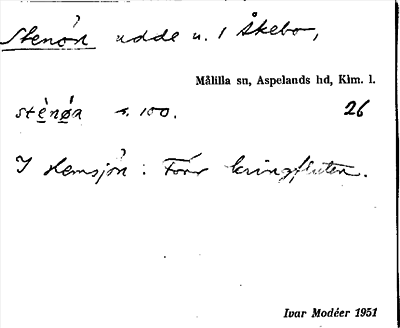 Stenön udde u. 1 Åkebo,
Målilla sn, Aspelands hd, Klm. l.
stènøn s. 100. 26
I Hemsjön. Förr kringfluten.
Ivar Modéer 1951